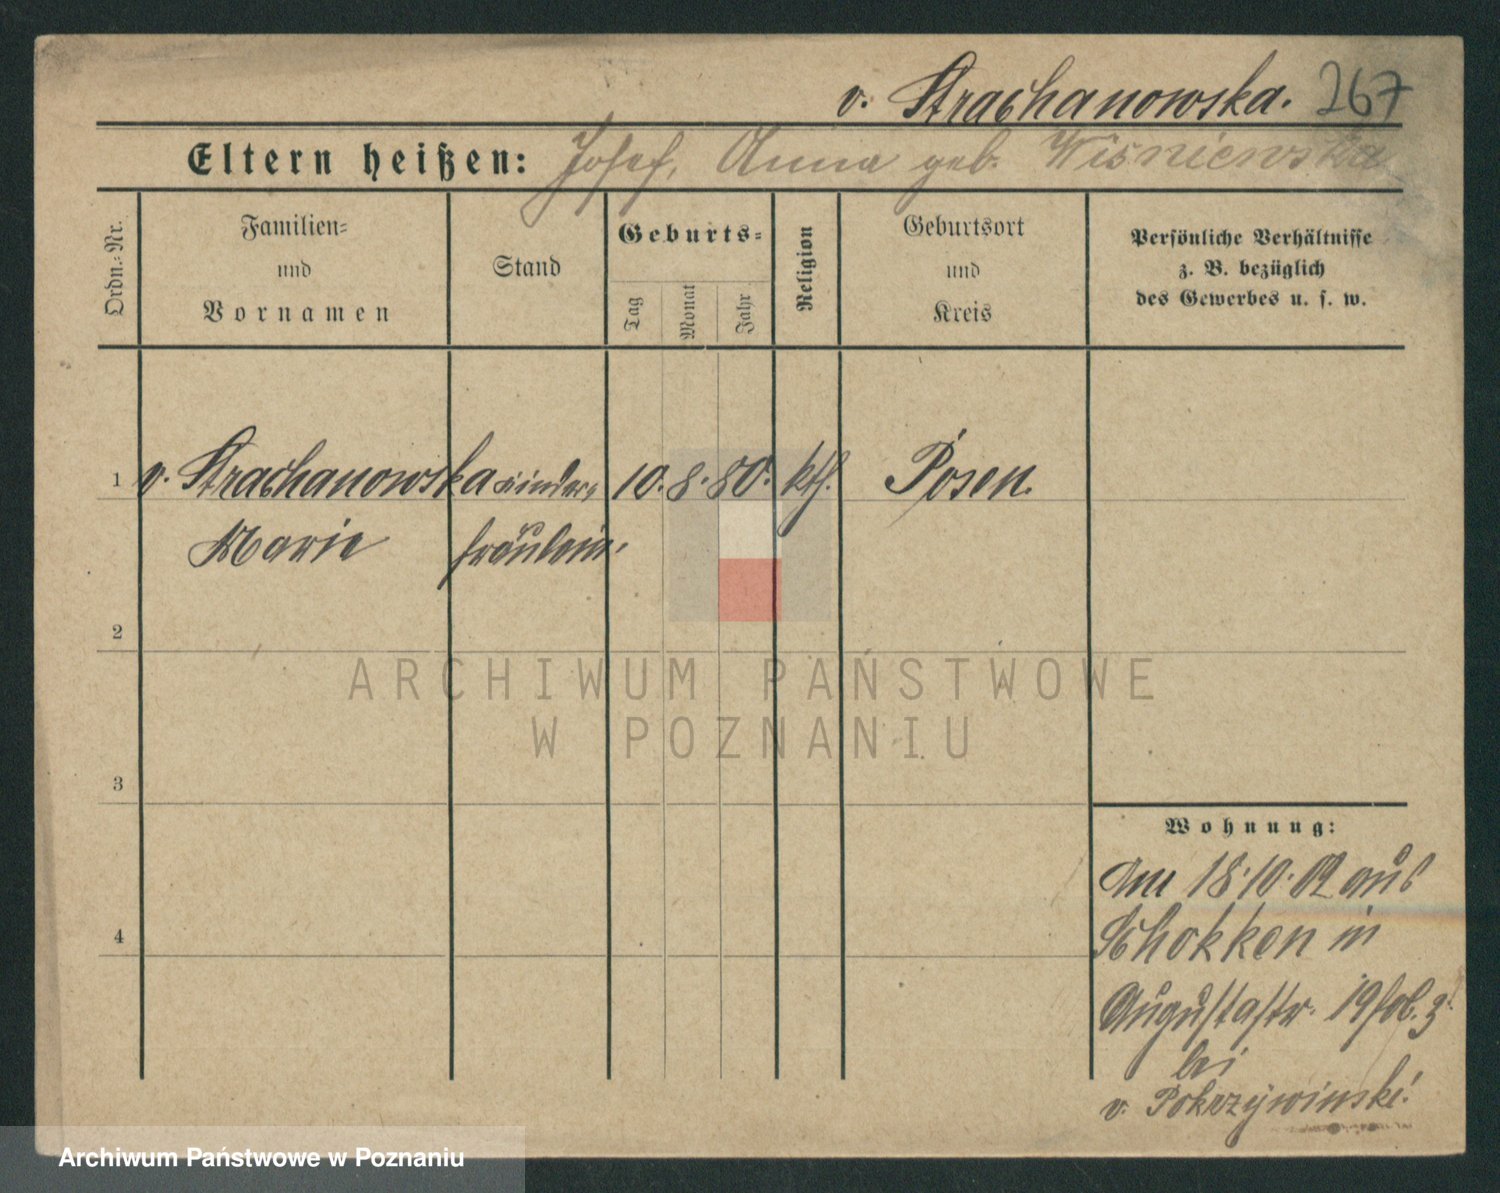 v. Strachanowska. 267
Eltern heißen: Josef, Anna geb. Wisniewska
Ordn.-Nr.
Familien-
und
Vornamen
Stand
Geburts-
Tag
Monat
Jahr
Religion
Geburtsort
und
Kreis
Persönliche Verhältnisse
z. B. bezüglich
des Gewerbes u. s. w.
1 v. Strachanowska Kinder- 10. 8. 80. kth. Posen.
Marie fräulein.
2
3
4
Wohnung:
Am 18.10.02 aus
Schokken in
Augustastr. 19
bei
v. Pokrzywinski.
ARCHIWUM PAŃSTWOWE
W POZNANIU
Archiwum Państwowe w Poznaniu